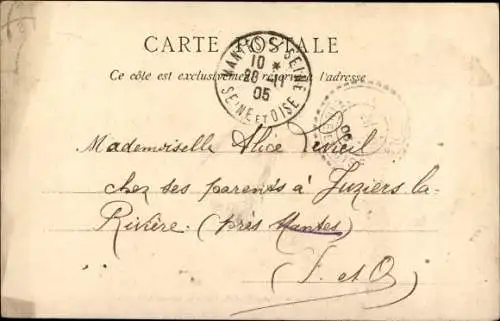 CARTE POSTALE
Ce côté est exclusivement réservé à l'adresse
MANTES S SEINE
10 *
28 -11
05
SEINE ET OISE
Mademoiselle Alice
chez ses parents à Juziers la-
Rivière. (près Mantes)
(S. et O)